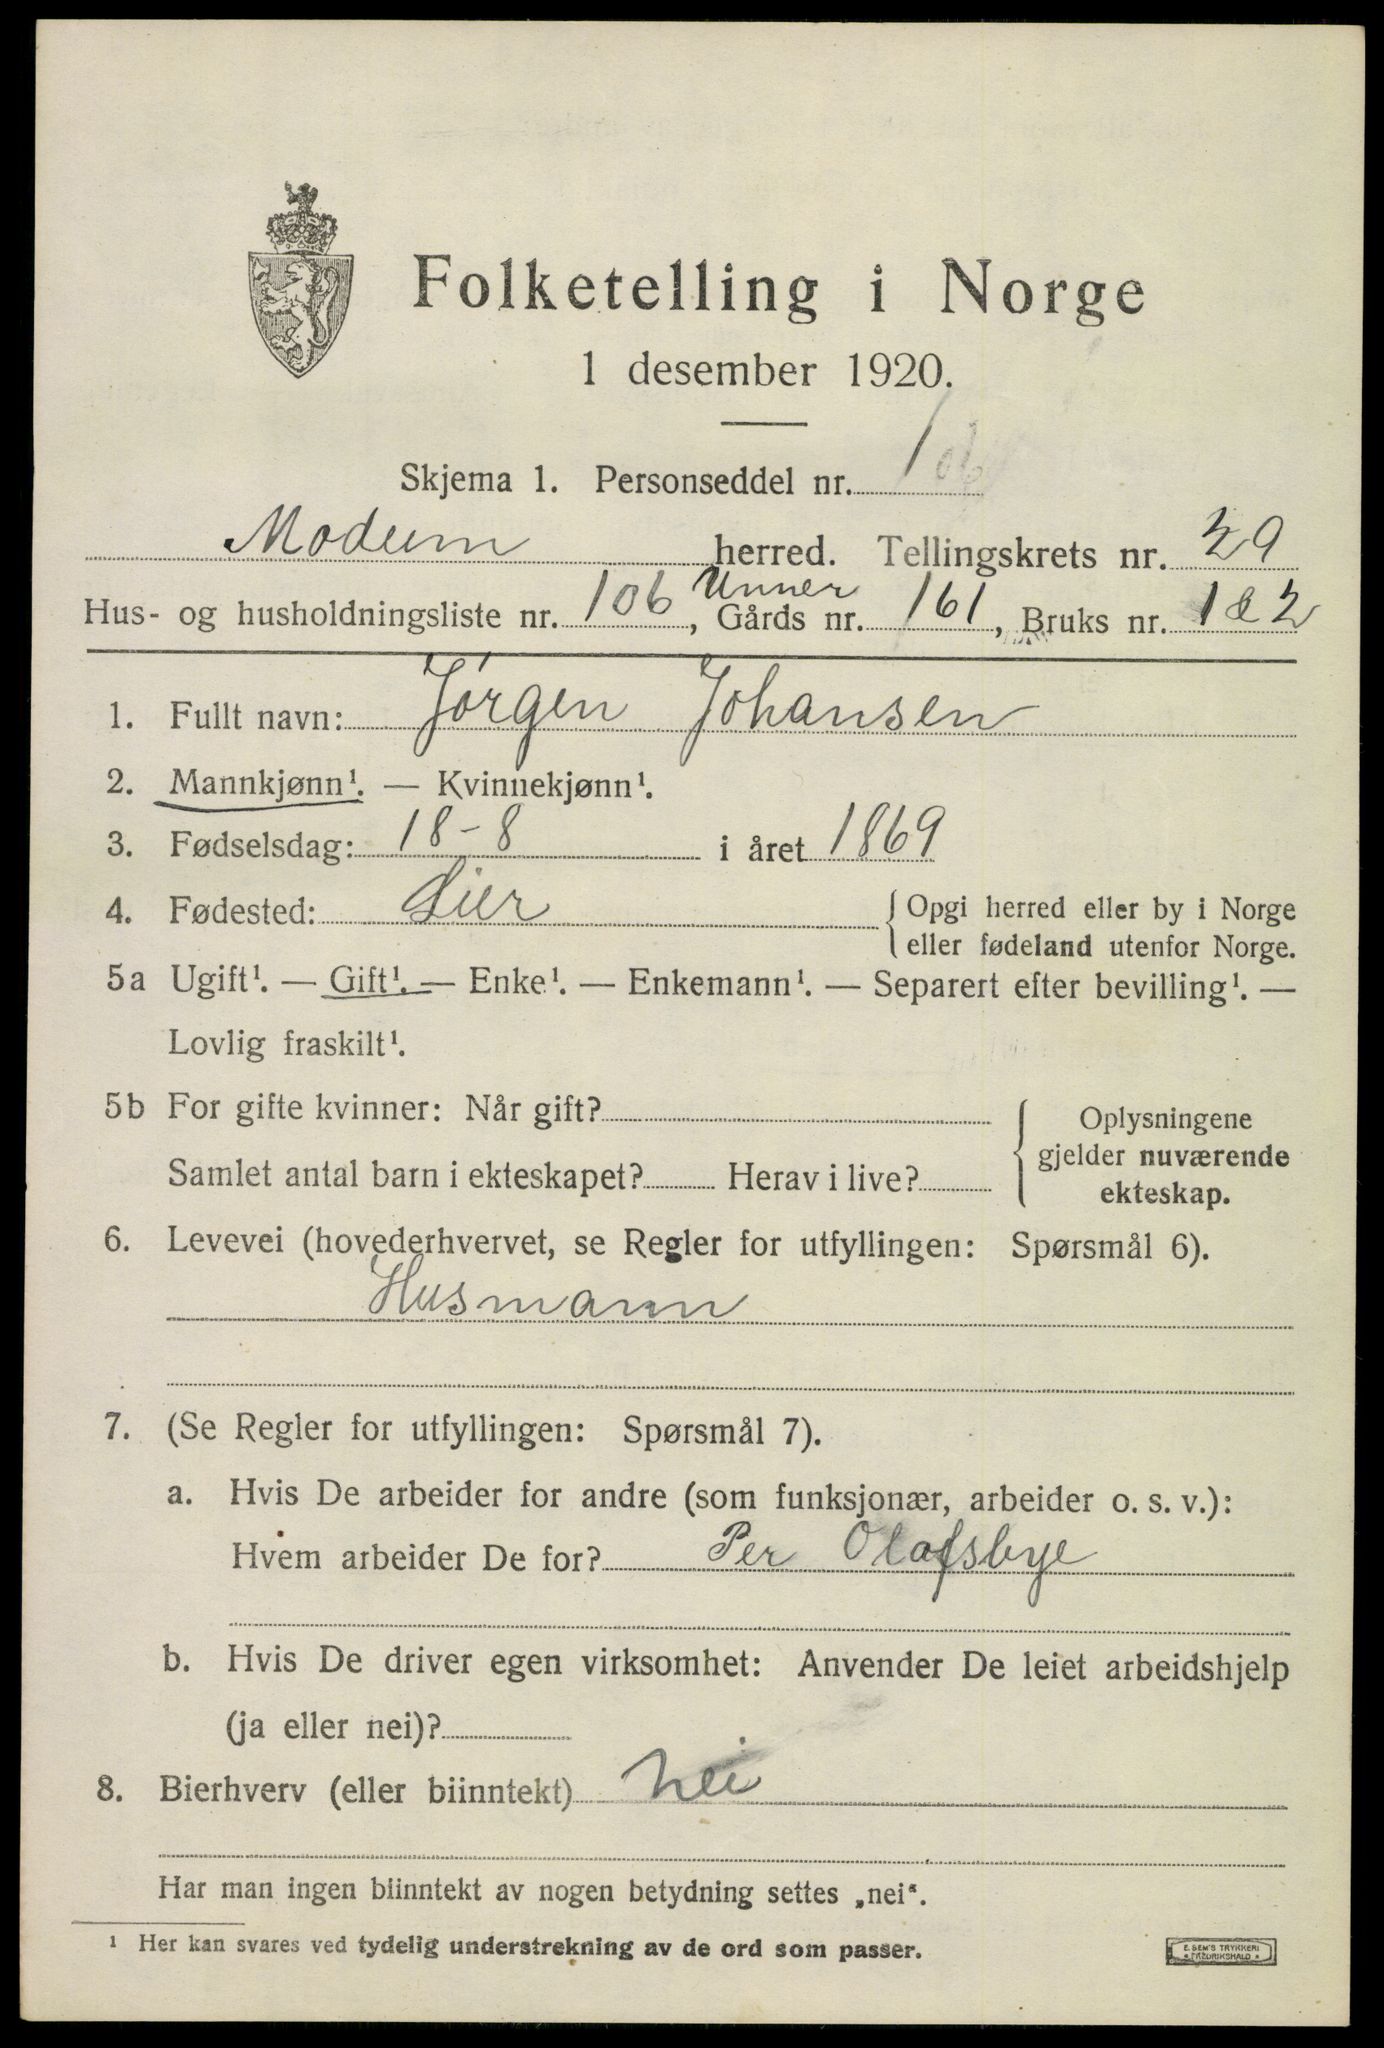 Folketelling i Norge
1 desember 1920.
Skjema 1. Personseddel nr. 1
Modum herred. Tellingskrets nr. 29
Unner
Hus- og husholdningsliste nr. 106, Gårds nr. 161, Bruks nr. 1 & 2
1. Fullt navn: Jørgen Johansen
2. Mannkjønn¹. — Kvinnekjønn¹.
3. Fødselsdag: 18-8 i året 1869
4. Fødested: Lier {Opgi herred eller by i Norge
eller fødeland utenfor Norge.
5a Ugift¹. — Gift¹. — Enke¹. — Enkemann¹. — Separert efter bevilling¹. —
Lovlig fraskilt¹.
5b For gifte kvinner: Når gift?
Samlet antal barn i ekteskapet? Herav i live?
Oplysningene
gjelder nuværende
ekteskap.
6. Levevei (hovederhvervet, se Regler for utfyllingen: Spørsmål 6).
Husmann
7. (Se Regler for utfyllingen: Spørsmål 7).
a. Hvis De arbeider for andre (som funksjonær, arbeider o. s. v.):
Hvem arbeider De for? Per Olafsbye
b. Hvis De driver egen virksomhet: Anvender De leiet arbeidshjelp
(ja eller nei)?
8. Bierhverv (eller biinntekt) Nei
Har man ingen biinntekt av nogen betydning settes „nei“.
¹ Her kan svares ved tydelig understrekning av de ord som passer.
E. SEM'S TRYKKERI
FREDRIKSHALD